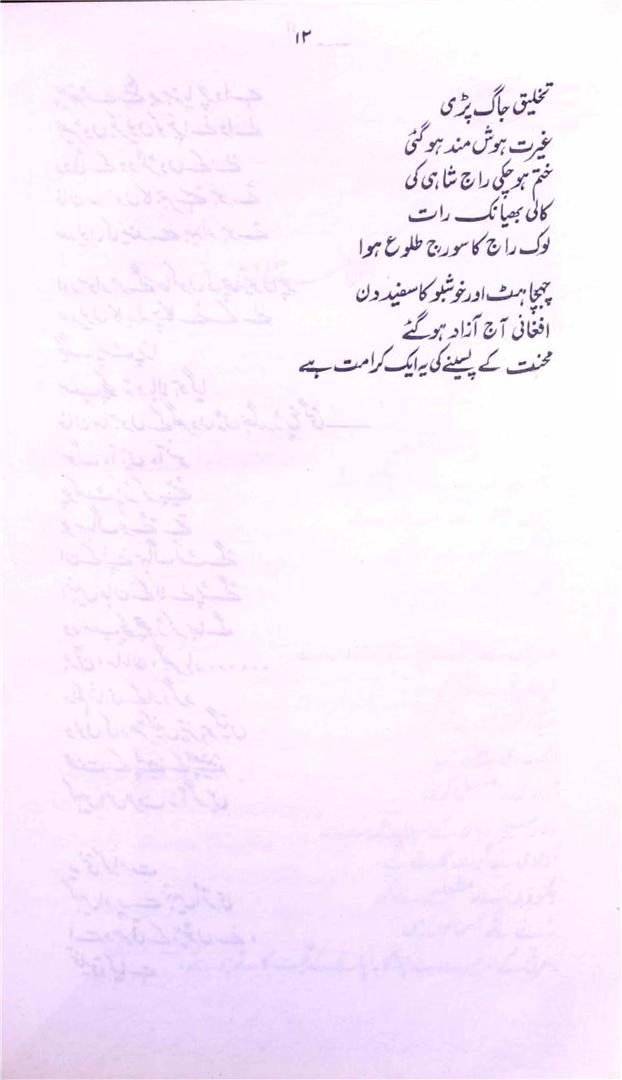 ۱۲
تخلیق جاگ پڑی
غیرت ہوش مند ہوگئی
ختم ہوچکی راج شاہی کی
کالی بھیانک رات
لوک راج کا سورج طلوع ہوا
چہچاہٹ اور خوشبو کا سفید دن
افغانی آج آزاد ہوگئے
محنت کے پسینے کی یہ ایک کرامت ہے